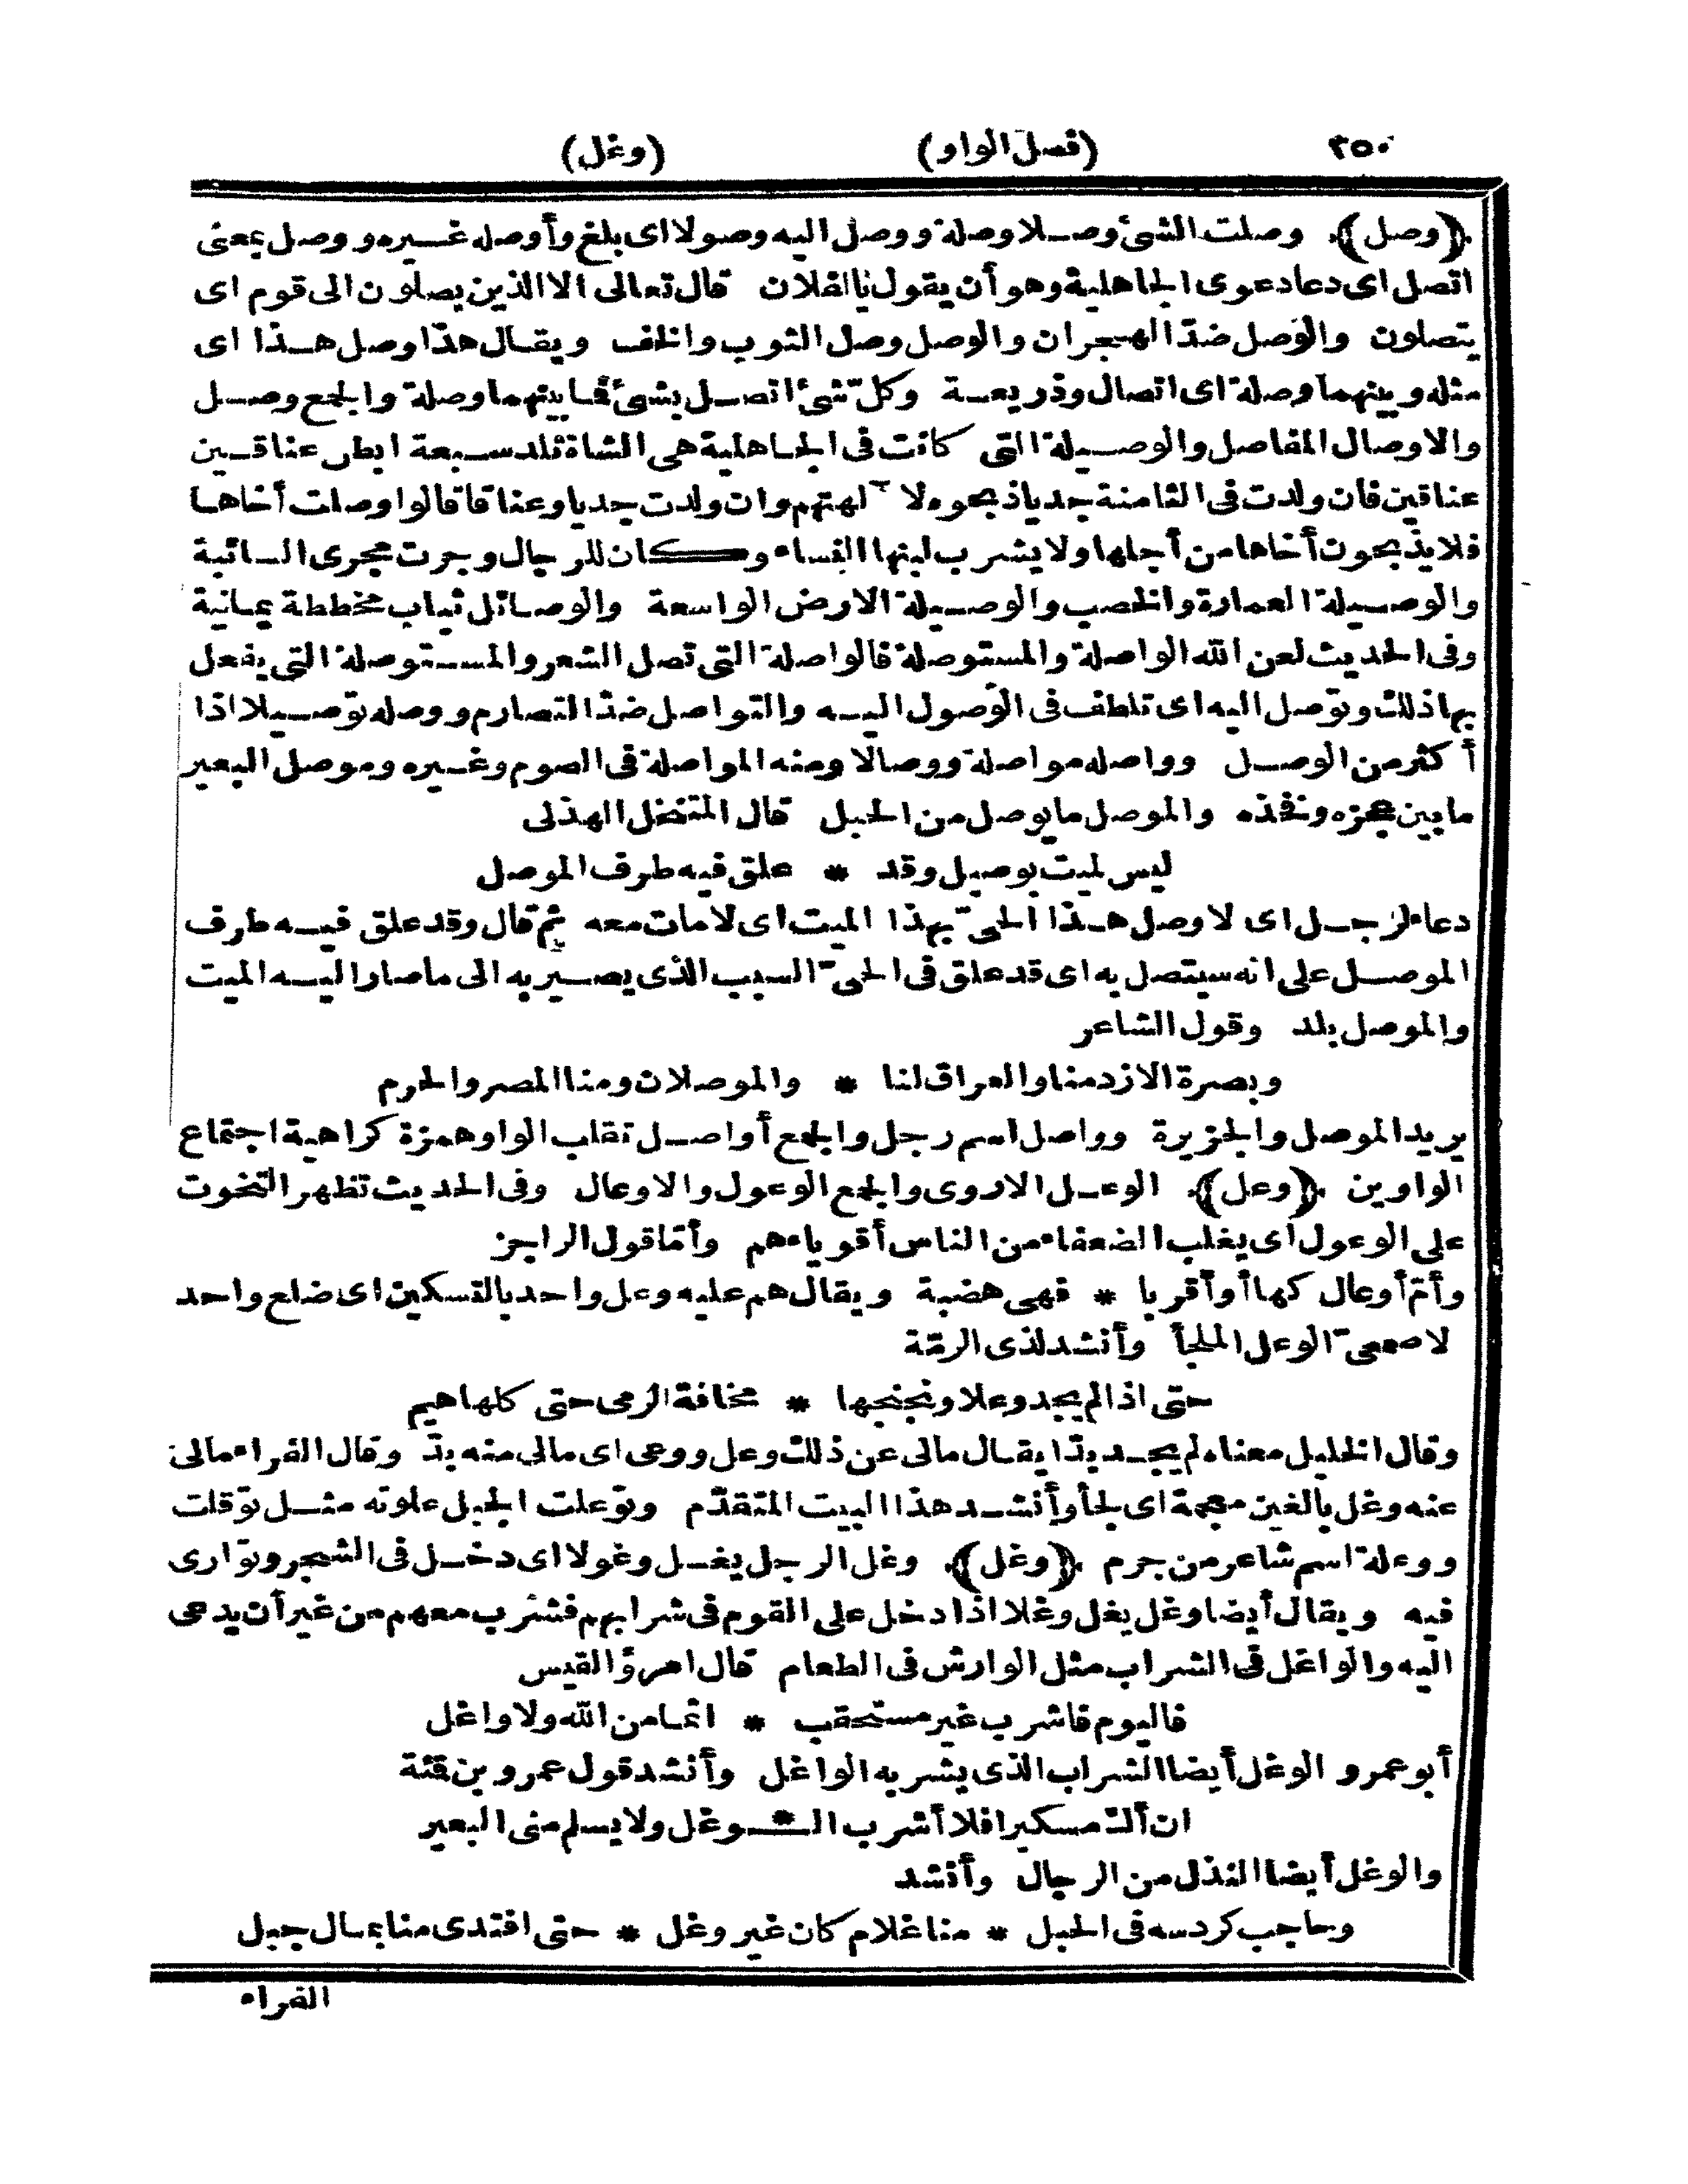 ٢٥٠ (فصل الواو) (وغل)
﴿وصل﴾ وصلت الشئ وصلا وصلة ووصل اليه وصولا اى بلغ وأوصله غيره ووصل بمعنى
اتصل اى دعا دعوى الجاهلية وهو أن يقول يالفلان قال تعالى الا الذين يصلون الى قوم اى
يتصلون والوصل ضدّ الهجران والوصل وصل الثوب والخف ويقال هذا وصل هذا اى
مثله وبينهما وصلة اى اتصال وذريعة وكلّ شئ اتصل بشئ فما بينهما وصلة والجمع وصل
والاوصال المفاصل والوصيلة التى كانت فى الجاهلية هى الشاة تلد سبعة ابطن عناقين
عناقين فان ولدت فى الثامنة جديا ذبحوه لآ لهتهم وان ولدت جديا وعناقا قالوا وصلت أخاها
فلا يذبحون أخاها من أجلها ولا يشرب لبنها النساء وكان للرجال وجرت مجرى السائبة
والوصيلة العمارة والخصب والوصيلة الارض الواسعة والوصائل ثياب مخططة يمانية
وفى الحديث لعن الله الواصلة والمستوصلة فالواصلة التى تصل الشعر والمستوصلة التى يفعل
بها ذلك وتوصل اليه اى تلطف فى الوصول اليه والتواصل ضدّ التصارم ووصله توصيلا اذا
أكثر من الوصل وواصله مواصلة ووصالا ومنه المواصلة فى الصوم وغيره وموصل البعير
ما بين عجزه وفخذه والموصل ما يوصل من الحبل قال المتنخل الهذلى
ليس لميت بوصيل وقد * علق فيه طرف الموصل
دعاء لرجل اى لا وصل هذا الحىّ بهذا الميت اى لا مات معه ثم قال وقد علق فيه طرف
الموصل على انه سيتصل به اى قد علق فى الحىّ السبب الذى يصير به الى ما صار اليه الميت
والموصل بلد وقول الشاعر
وبصرة الازد منا والعراق لنا * والموصلان ومنا المصر والحرم
يريد الموصل والجزيرة وواصل اسم رجل والجمع أواصل تقلب الواو همزة كراهية اجتماع
الواوين ﴿وعل﴾ الوعل الاروى والجمع الوعول والاوعال وفى الحديث تظهر التخوت
على الوعول اى يغلب الضعفاء من الناس أقوياءهم وأمّا قول الراجز
وأمّ أوعال كها أو أقربا * فهى هضبة ويقال هم عليه وعل واحد بالتسكين اى ضلع واحد
لاصمعىّ الوعل الملجأ وأنشد لذى الرمّة
حتى اذا لم يجد وعلا ونجنجها * مخافة الرمى حتى كلها هيم
وقال الخليل معناه لم يجد بدّا يقال مالى عن ذلك وعل ووعى اى مالى منه بدّ وقال الفراء مالى
عنه وغل بالغين معجمة اى لجأ وأنشد هذا البيت المتقدّم وتوعلت الجبل علوته مثل توقلت
ووعلة اسم شاعر من جرم ﴿وغل﴾ وغل الرجل يغل وغولا اى دخل فى الشجر وتوارى
فيه ويقال أيضا وغل يغل وغلا اذا دخل على القوم فى شرابهم فشرب معهم من غير أن يدعى
اليه والواغل فى الشراب مثل الوارش فى الطعام قال امرؤ القيس
فاليوم فاشرب غير مستحقب * اثما من الله ولا واغل
أبو عمرو الوغل أيضا الشراب الذى يشربه الواغل وأنشد قول عمرو بن قمئة
ان ألك مسكيرا فلا أشرب الـ * ـوغل ولا يسلم منى البعير
والوغل أيضا النذل من الرجال وأنشد
وحاجب كردسه فى الحبل * منا غلام كان غير وغل * حتى افتدى منا بمال جبل
الفراء